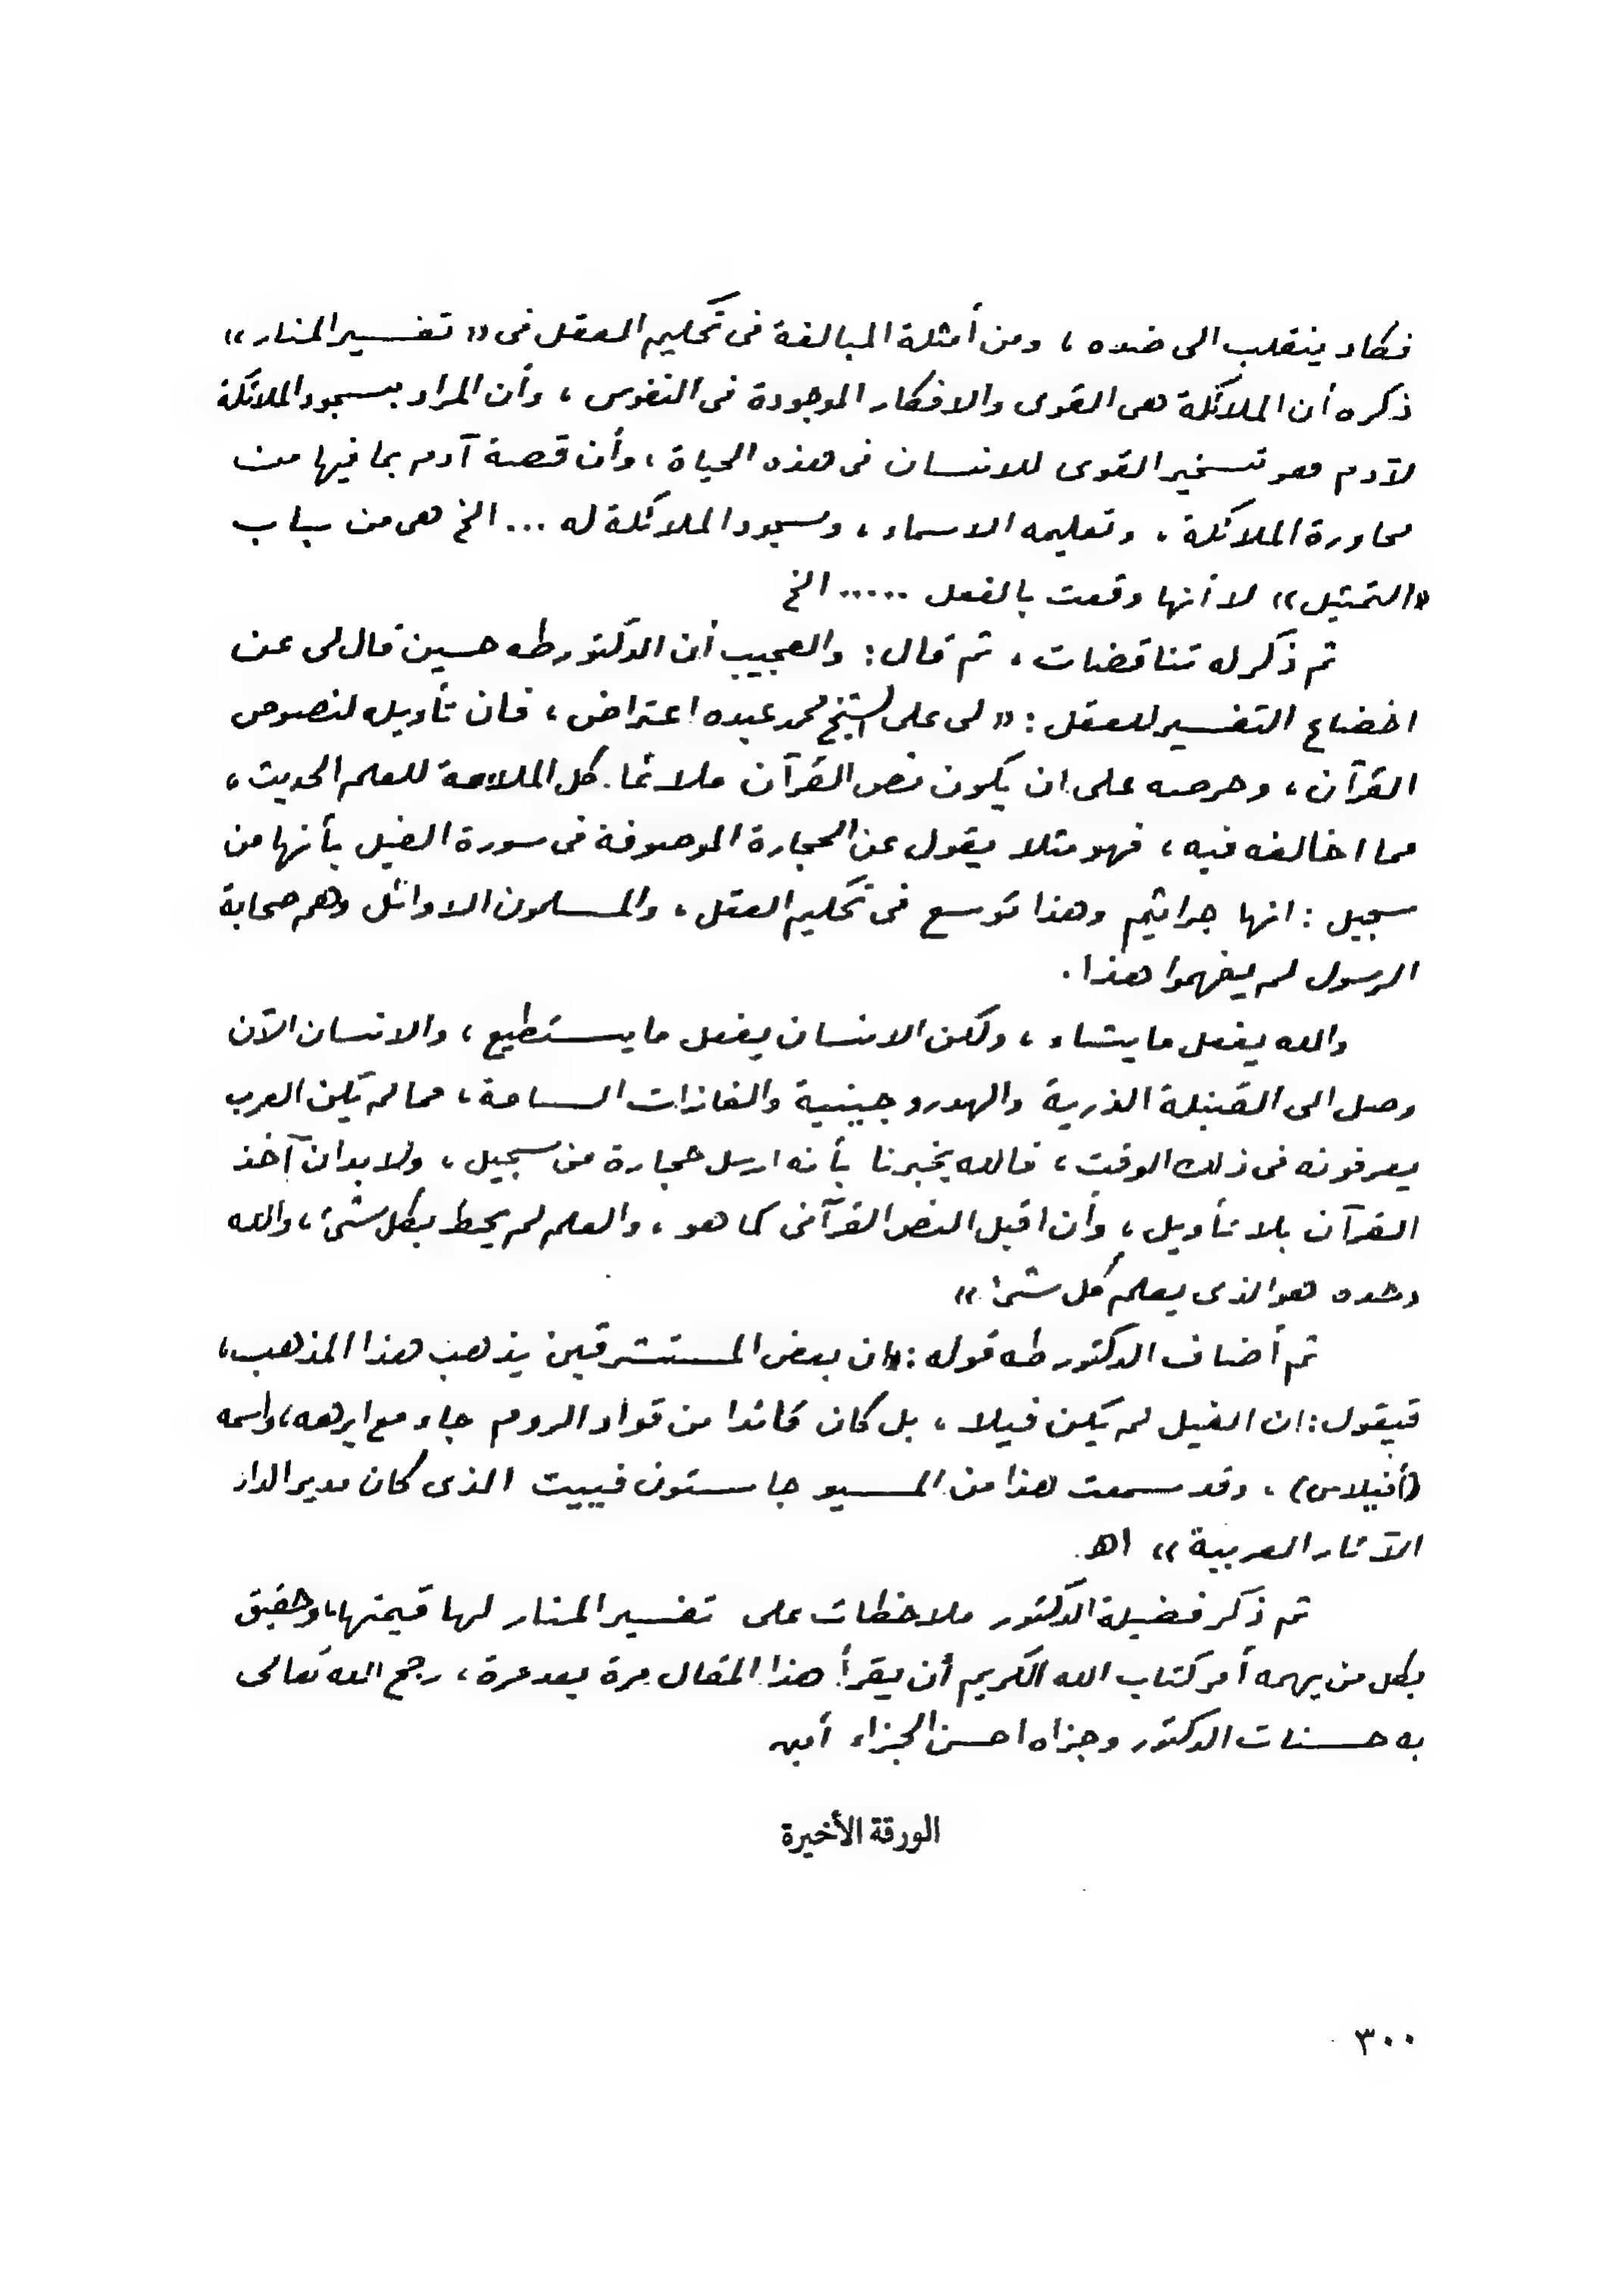 فكاد ينقلب الى ضده ، ومن أمثلة المبالغة فى تحكيم العقل فى « تفسير المنار »
ذكره أن الملائكة هى القوى والافكار الموجودة فى النفوس ، وأن المراد بسجود الملائكة
لآدم هو تسخير القوى للانسان فى هذه الحياة ، وأن قصة آدم بما فيها من
محاورة الملائكة ، وتعليمه الاسماء ، وسجود الملائكة له ... الخ هى من باب
« التمثيل » لا أنها وقعت بالفعل ..... الخ
ثم ذكر له تناقضات ، ثم قال : والعجيب أن الدكتور طه حسين قال لى عن
اخضاع التفسير للعقل : « لى على الشيخ محمد عبده اعتراض ، فان تأويله لنصوص
القرآن ، وحرصه على ان يكون نص القرآن ملائما كل الملاءمة للعلم الحديث ،
مما اخالفه فيه ، فهو مثلا يقول عن الحجارة الموصوفة فى سورة الفيل بأنها من
سجيل : انها جراثيم وهذا توسع فى تحكيم العقل ، والمسلمون الاوائل وهم صحابة
الرسول لم يفهموا هذا .
والله يفعل ما يشاء ، ولكن الانسان يفعل ما يستطيع ، والانسان الآن
وصل الى القنبلة الذرية والهدروجينية والغازات السامة ، مما لم تكن العرب
يعرفونه فى ذلك الوقت ، فالله يخبرنا بأنه ارسل حجارة من سجيل ، ولا بد ان آخذ
القرآن بلا تأويل ، وأن اقبل النص القرآنى كما هو ، والعلم لم يحط بكل شئ ، والله
وحده هو الذى يعلم كل شئ »
ثم أضاف الدكتور طه قوله : « ان بعض المستشرقين يذهب هذا المذهب ،
فيقول : ان الفيل لم يكن فيلا ، بل كان قائدا من قواد الروم جاء مع ابرهه ، واسمه
(أفيلاس) ، وقد سمعت هذا من المسيو جاستون فييت الذى كان مديرا لدار
الآثار العربية » اهـ.
ثم ذكر فضيلة الدكتور ملاحظات على تفسير المنار لها قيمتها ، وحقيق
بكل من يهمه أمر كتاب الله الكريم أن يقرأ هذا المقال مرة بعد مرة ، رجح الله تعالى
به حسنات الدكتور وجزاه احسن الجزاء أمين
الورقة الأخيرة
٣٠٠